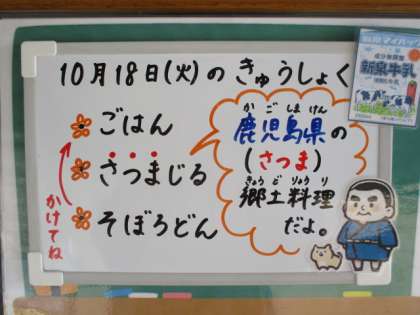 10月18日(火)のきゅうしょく
ごはん
さつまじる
そぼろどん
かけてね
かごしまけん
鹿児島県の
(さつま)
きょうどりょうり
郷土料理
だよ。
新泉牛乳